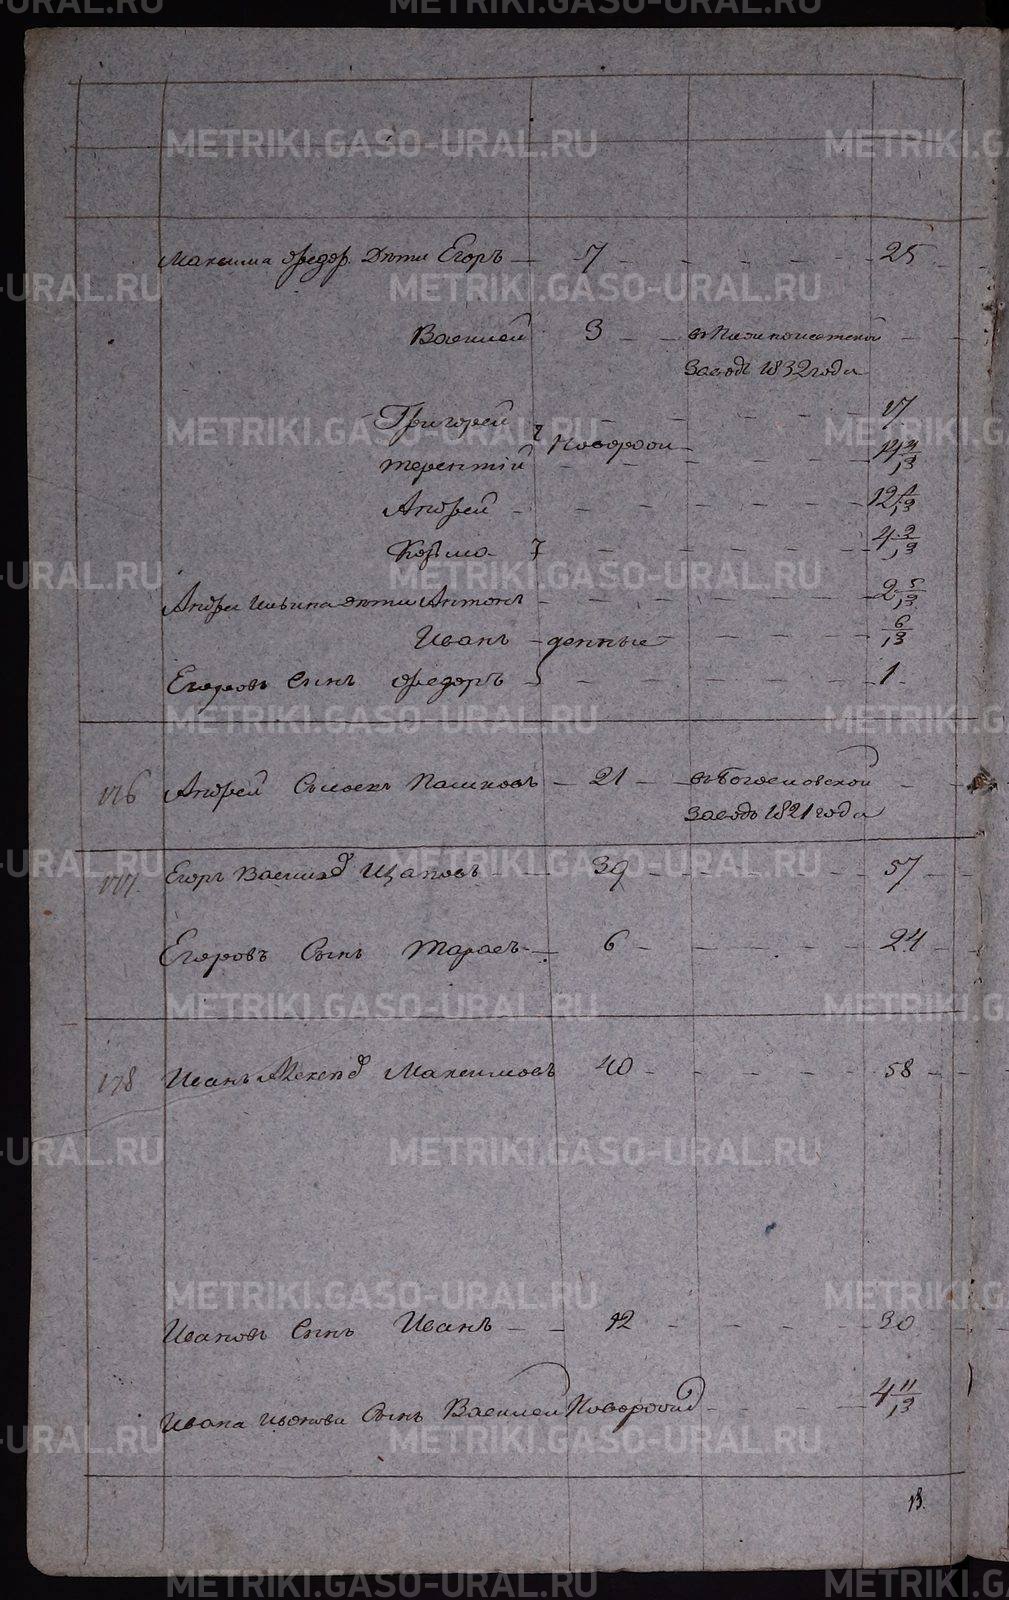 METRIKI.GASO-URAL.RU
Максима Федор. Дѣти Егоръ — 7 — 25
Василей 3 —
заводъ 1832 года
Григорей 17
Терентiй Новорож 14 3/13
Андрей 12 4/13
Козма 4 2/13
Андрея Ильина дѣти Антонъ 2 5/13
Иванъ — денные 6/13
Егоровъ Сынъ Федоръ 1
176 Андрей Сысоевъ Пашковъ — 21 — въ Богословской
заводъ 1821 года
177 Егоръ Васильев Щаповъ 39 57
Егоровъ Сынъ Тарасъ — 6 24
178 Иванъ Максимовъ 40 58
Ивановъ Сынъ Иванъ — 12 30
Ивана Иванова Сынъ Василей Новорожд 4 11/13
13.